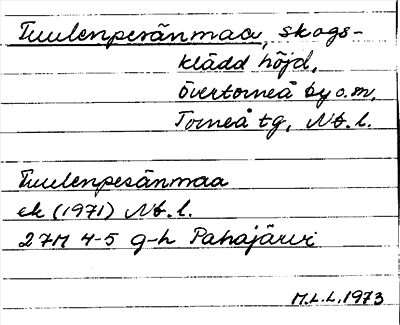 Tuulenpesänmaa, skogs-
klädd höjd,
Övertorneå by o.m,
Torneå tg, Nb. l.
Tuulenpesänmaa
ek (1971) Nb. l.
27M 4-5 g-h Pahajärvi
M.L.L. 1973